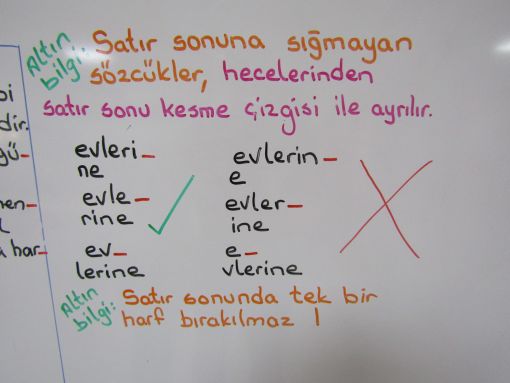 Altın bilgi:
Satır sonuna sığmayan
sözcükler, hecelerinden
satır sonu kesme çizgisi ile ayrılır.
evleri-
ne
evle-
rine
ev-
lerine
evlerin-
e
evler-
ine
e-
vlerine
Altın bilgi:
Satır sonunda tek bir
harf bırakılmaz !
dir.
gü-
har-